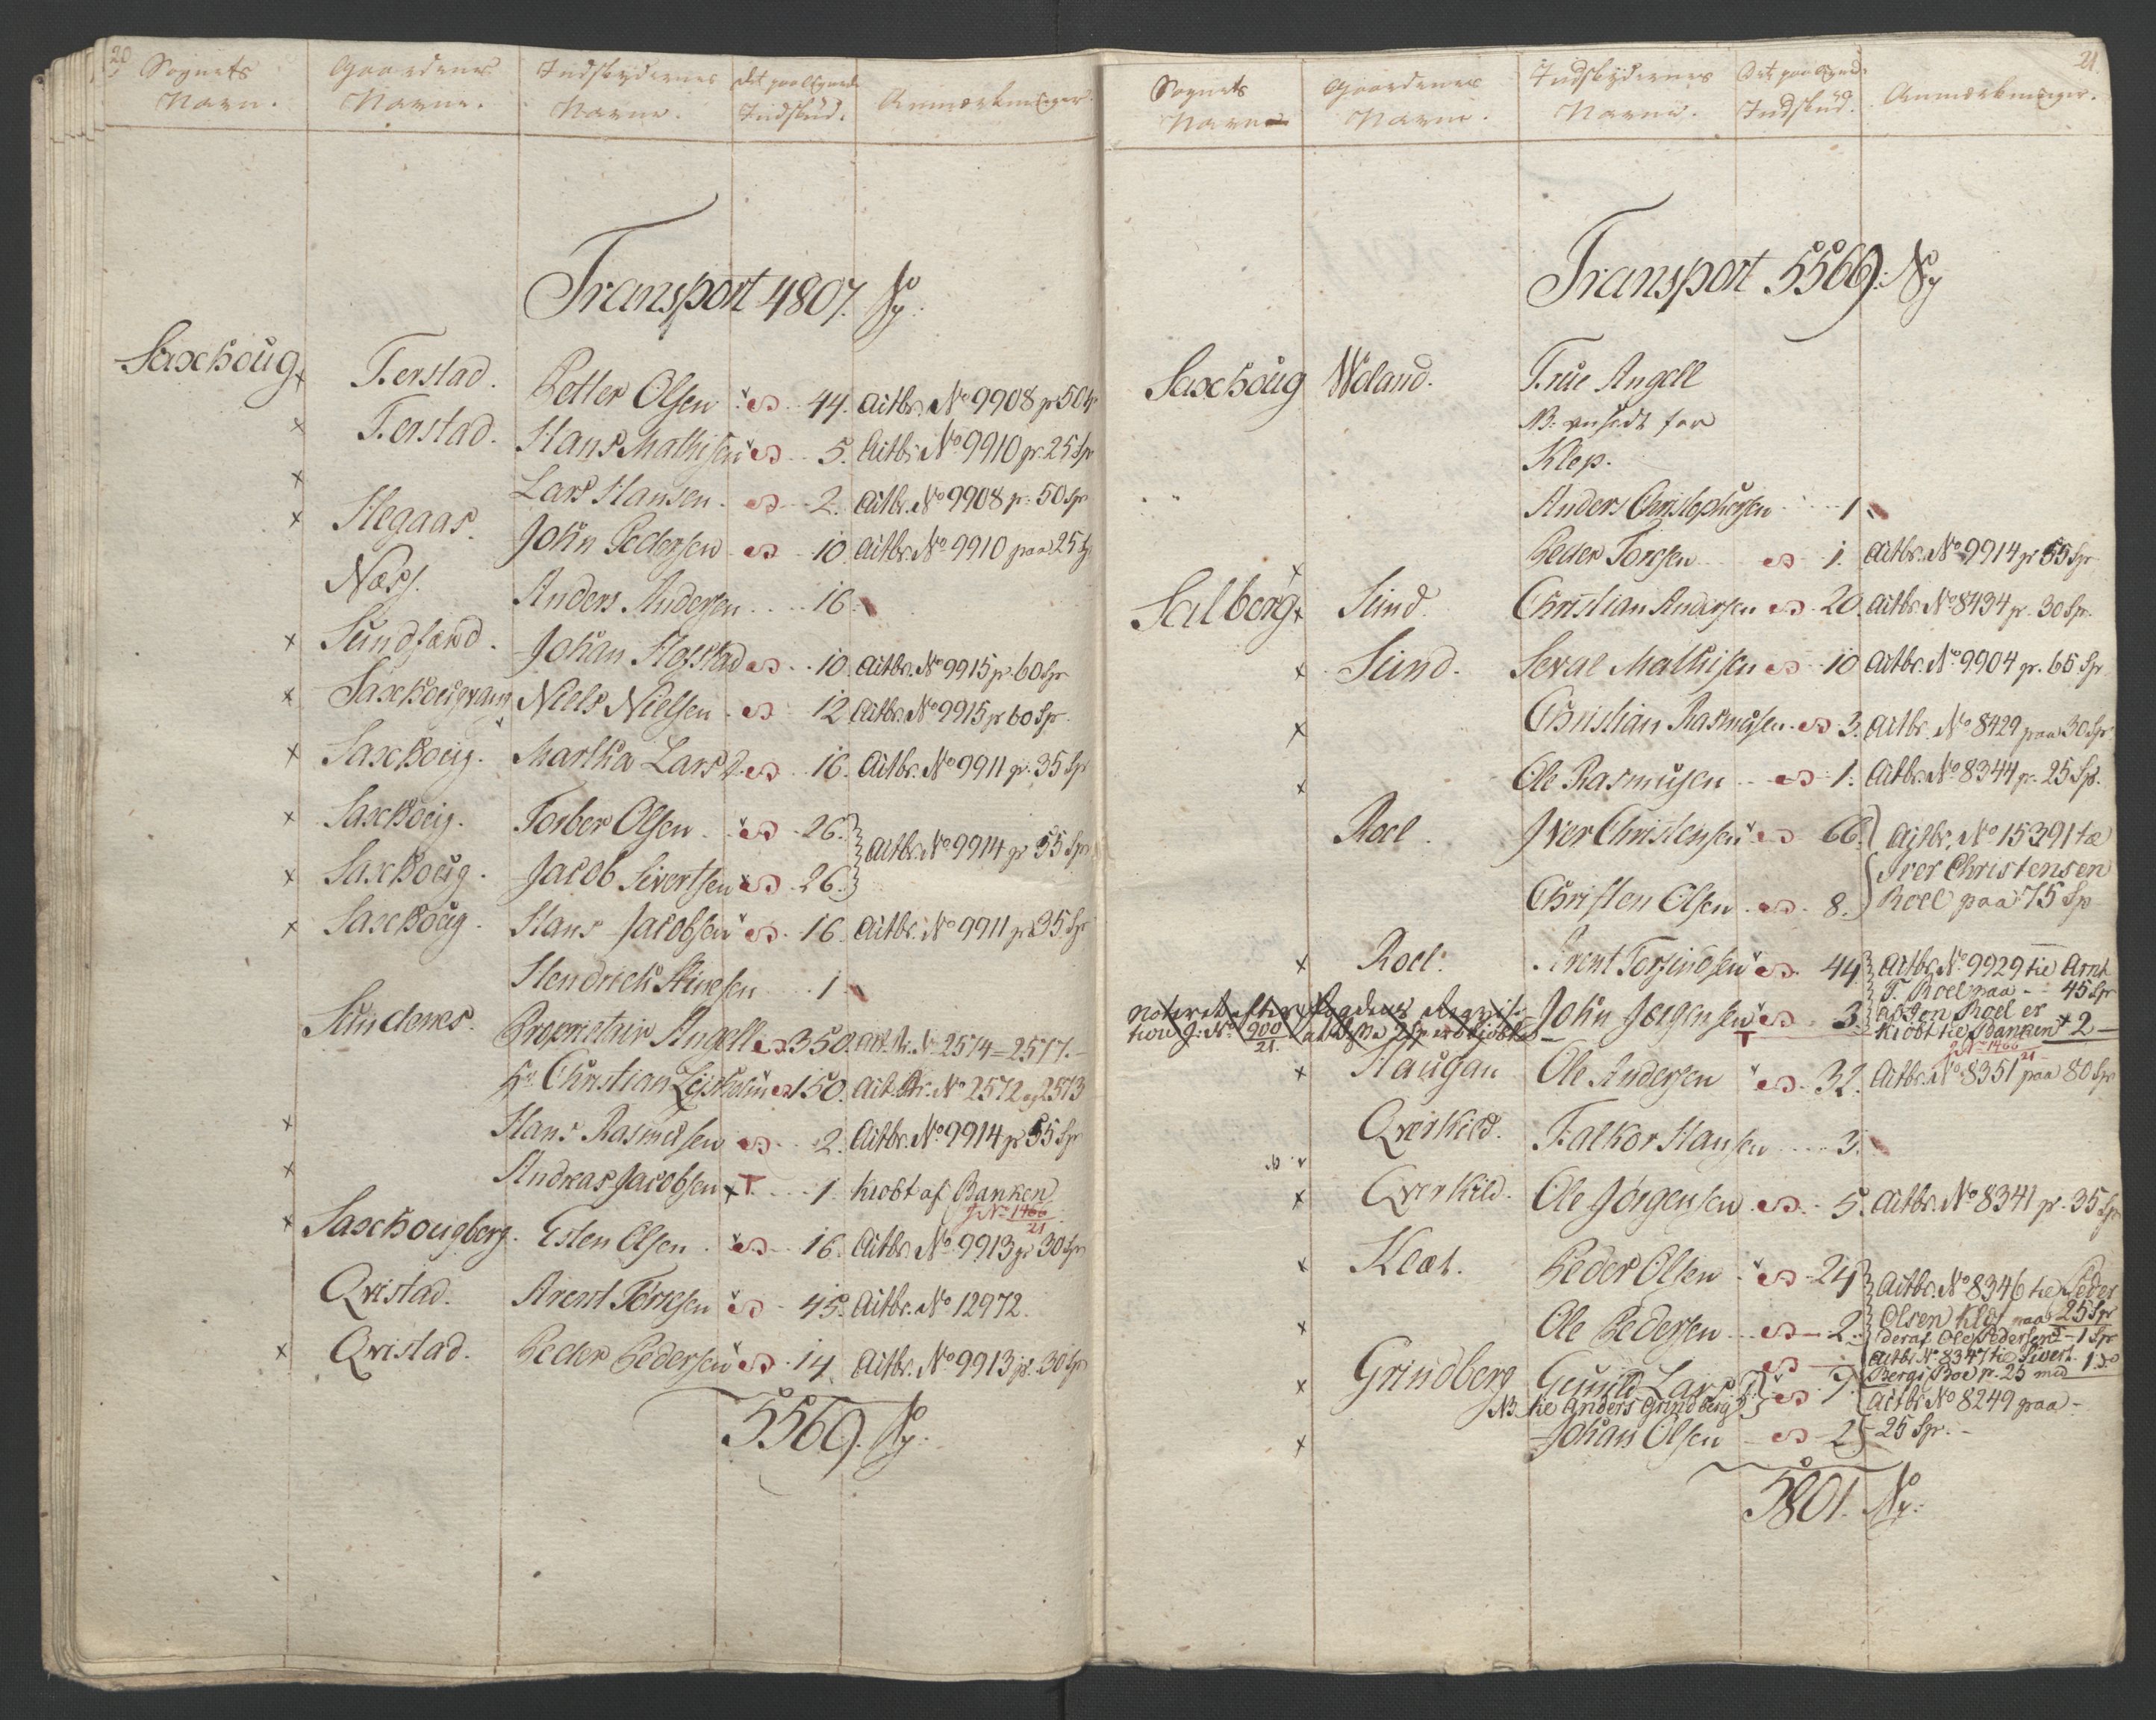 20.
Sognets Navn. Gaardenes Navne. Indskydernes Navne. Det paalignede Indskud. Anmærkninger.
Transport 4807. Sp.
Saxhoug x Ferstad. Petter Olsen 44. Actbr. No 9908 pr 50 Sp
x Ferstad. Hans Mathisen 5. Actbr No 9910 pr. 25 Sp
x Lars Hansen. 2. Actbr. No 9908 pr. 50 Sp
x Hegaas. John Pedersen 10. Actbr. No 9910 paa 25 Sp
Næss. Anders Andersen 16.
x Sundfærd. Johan Hofstad 10. Actbr. No 9915 pr. 60 Sp
x Saxhougvang Niels Nielsen 12. Actbr. No 9915 pr 60 Sp.
x Saxhoug. Martha Lars D. 16. Actbr. No 9911 pr. 35 Sp
x Saxhoug. Torber Olsen. 26. } Actbr. No 9914 pr 55 Sp
x Saxhoug. Jacob Sivertsen 26. }
x Saxhoug. Hans Jacobsen 16. Actbr. No 9911 pr 35 Sp
Hendrich Stinesen 1.
Sundenes. Proprietair Angell 350. Act. Br. No 2514=2517.
Hr. Christian 150. Act. Br. No 2572 og 2573
x Hans Rasmusen 2. Actbr. No 9914 pr 55 Sp
x Andreas Jacobsen x T 1. Kiøbt af Banken
J No 1466/21
x Saxhougberg. Esten Olsen. 16. Actbr. No 9913 pr 30 Sp
Qvistad. Arent Tørresen 45. Actbr. No 12972.
x Qvistad. Peder Pedersen 14. Actbr. No 9913 pr. 30 Sp
5569. Sp.
21.
Sognets Navn Gaardenes Navne. Indskydernes Navne. Det paalignede Indskud. Anmærkninger.
Transport 5569. Sp
Saxhoug Woland. Frue Angell
NB: ansadt for
Klep.
Anders Christophersen 1
x Peder Toresen 1. Actbr. No 9914 pr 55 Sp
Salberg x Sund. Christian Andersen 20. Actbr. No 8434 pr. 30 Sp.
x Sund. Seval Mathisen 10 Actbr. No 9904 pr. 65 Sp
x Christian Rasmusen 3. Actbr. No 8429 paa 30 Sp
x Ole Rasmusen 1. Actbr. No 8344 pr. 25 Sp.
Roel. Iver Christensen 66. } Actbr. No 15391 til
Iver Christensen
Christen Olsen 8. } Roel paa 75 Sp
x Roel. Arent Torfindsen 44 } Actbr. No 9929 til Arnt
T. Roel paa - 45 Sp
Noteret efter Fogdens Requisi- John Jørgensen 3. Actien Roel er
tion J. No 900/21. T kiøbt til Banken x 2 -
J No 1466/21
x Haugan Ole Andersen 32. Actbr. No 8351 paa 80 Sp
Qverkild. Falkor Hansen 3.
x Qverkild. Ole Jørgensen 5. Actbr. No 8341 pr. 35 Sp
x Klæt. Peder Olsen 24 } Actbr. No 8346 til Peder
Olsen Klæt paa 25 Sp
x Ole Pedersen 2. } deraf Ole Pedersen - 1 Sp
Actbr No 8347 til Sivert
Bergs Roe p. 25 med 1 do
x Grindberg Gunild Lars D. } 7. } Actbr No 8249 paa -
NB. til Anders Grindberg }
x Johan Olsen 2 } 25 Sp. -
5801. Sp.